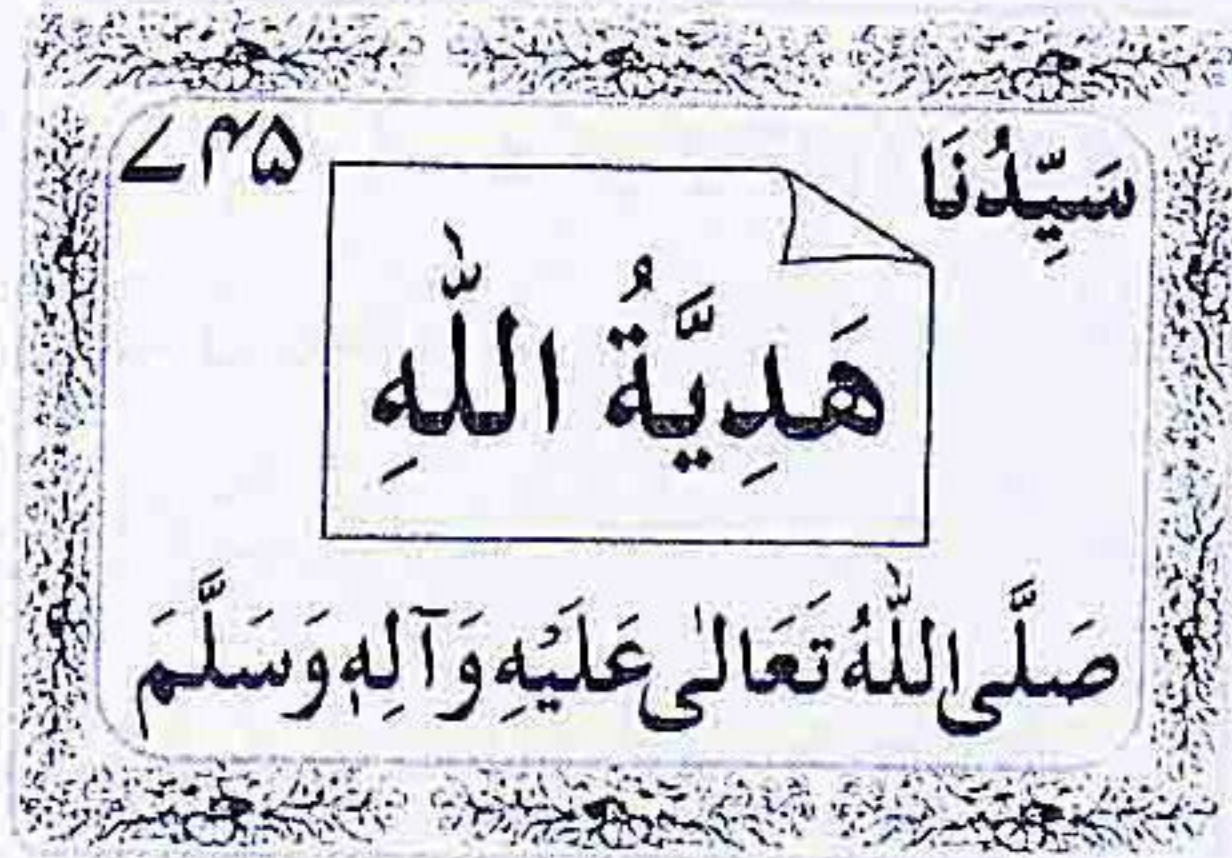 سَيِّدُنَا ۷۴۵
هَدِيَّةُ اللّٰهِ
صَلَّى اللّٰهُ تَعَالٰى عَلَيْهِ وَآلِهٖ وَسَلَّمَ